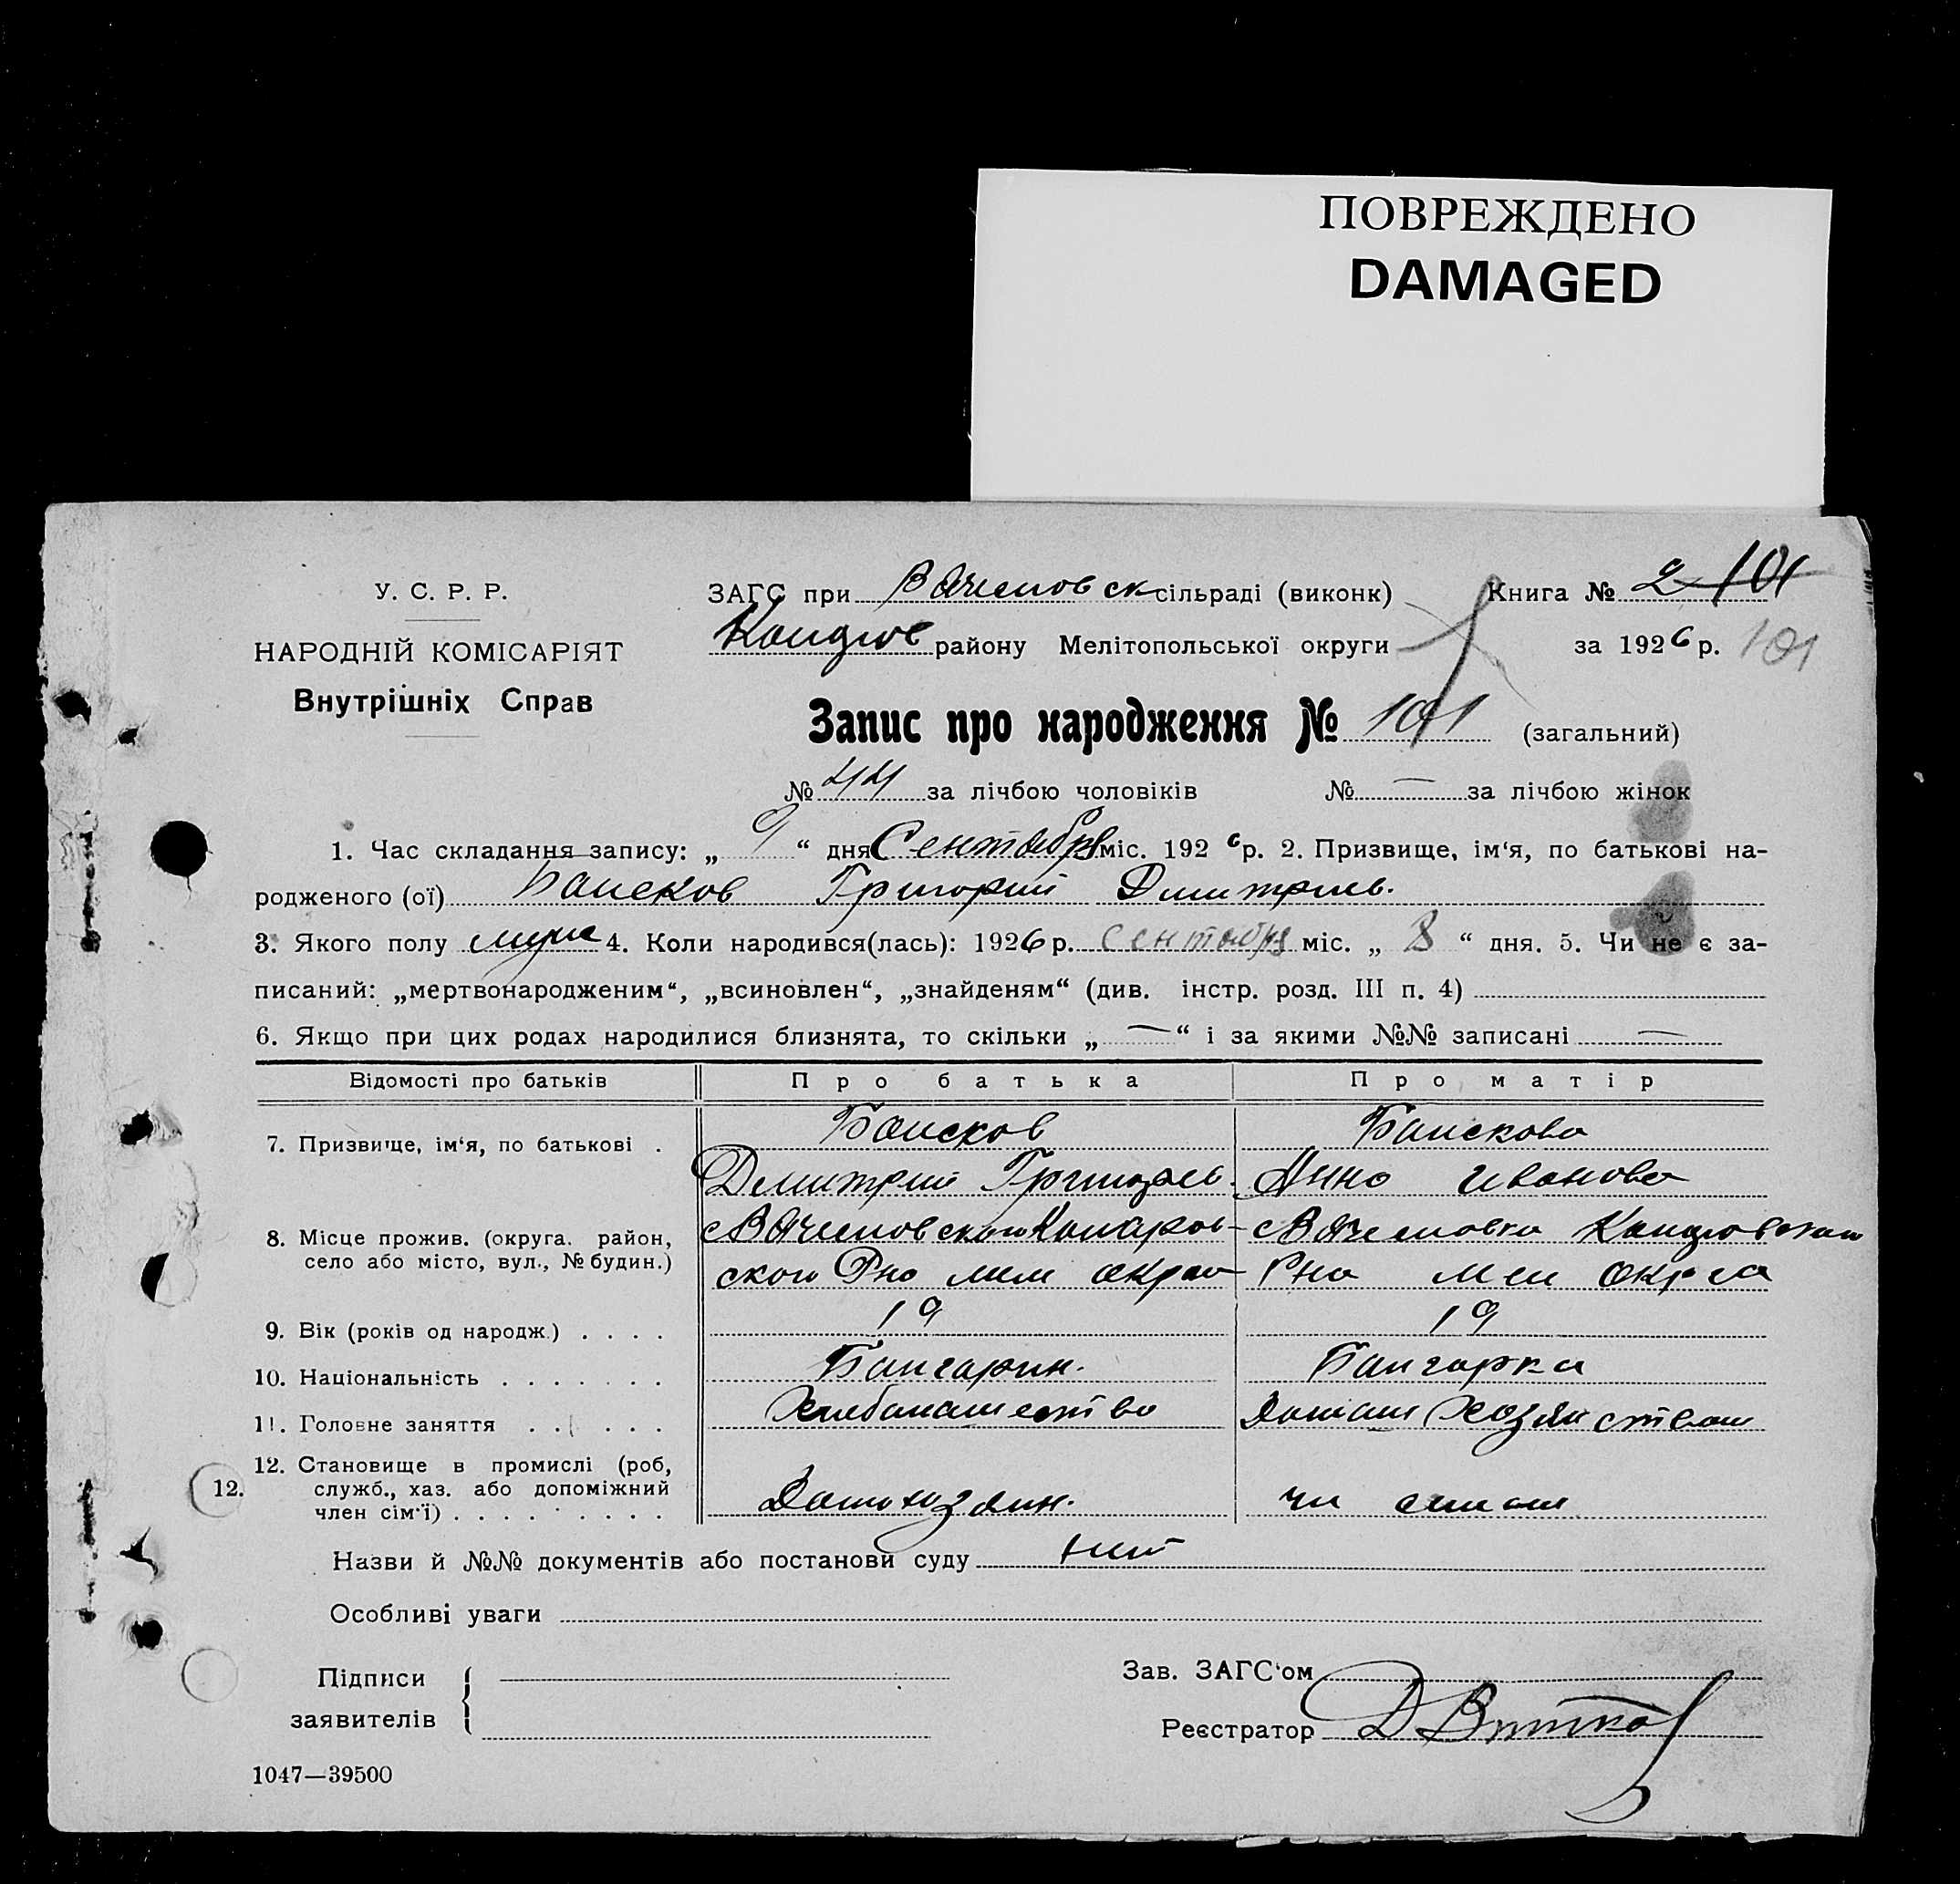 ПОВРЕЖДЕНО
DAMAGED
У. С. Р. Р.
НАРОДНІЙ КОМІСАРІЯТ
Внутрішніх Справ
ЗАГС при Вячеловск сільраді (виконк)
району Мелітопольської округи
Книга № 2 101
за 1926 р. 101
Запис про народження № 101 (загальний)
№ 44 за лічбою чоловіків № — за лічбою жінок
1. Час складання запису: „ 9 “ дня Сентября міс. 1926 р. 2. Призвище, ім'я, по батькові на-
родженого (ої) Григорий Дмитриев.
3. Якого полу муж 4. Коли народився(лась): 1926 р. Сентября міс. „ 8 “ дня. 5. Чи не є за-
писаний: „мертвонародженим“, „всиновлен“, „знайденям“ (див. інстр. розд. III п. 4)
6. Якщо при цих родах народилися близнята, то скільки „ — “ і за якими №№ записані —
Відомості про батьків Про батька Про матір
7. Призвище, ім'я, по батькові .
Дмитрий Григорьев. Анна Иванова
8. Місце прожив. (округа. район,
село або місто, вул., № будин.)
ского Рна мел округа Рна мел округа
9. Вік (років од народж.) . . . . 19 19
10. Національність . . . . . . . Балгарин. Балгарка
11. Головне заняття . . . . . Хлебопашество Домаш Хозяйством
12. Становище в промислі (роб,
служб., хаз. або допоміжний
член сім'ї) . . . . . . . . . Домохозяин. чл семьи
12.
Назви й №№ документів або постанови суду нет
Особливі уваги
Підписи
заявителів
Зав. ЗАГС'ом
Реєстратор
1047—39500